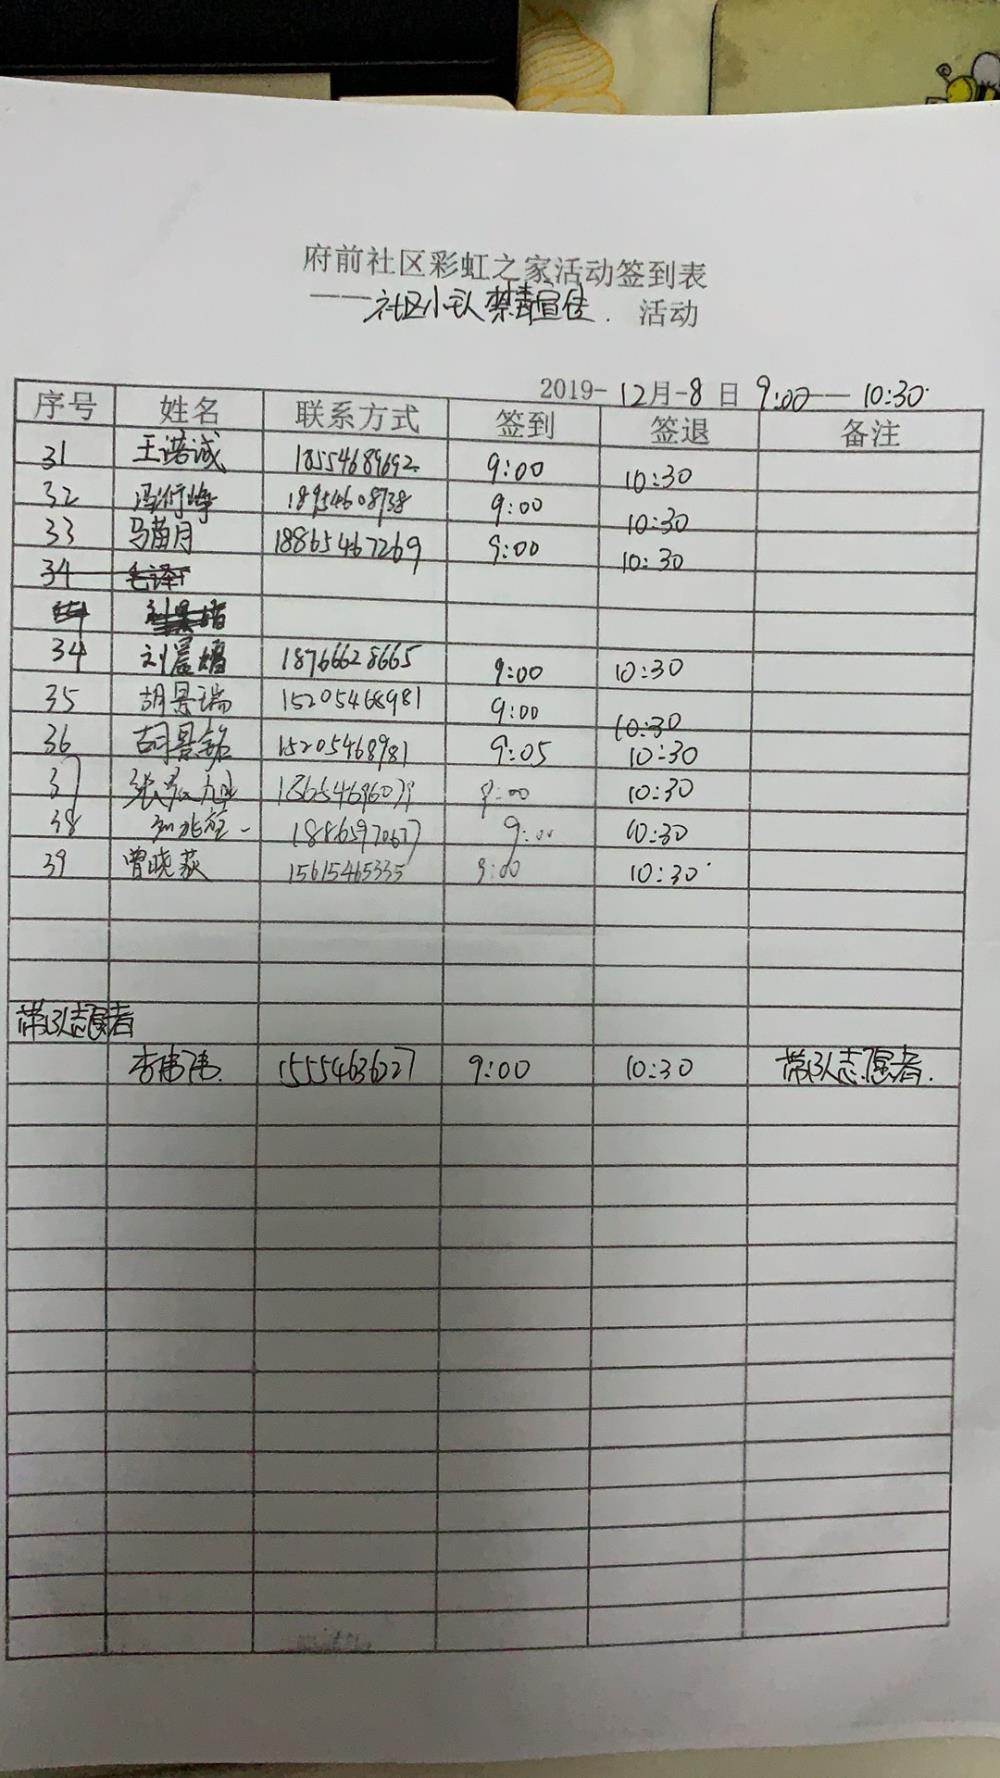 府前社区彩虹之家活动签到表
——社区小队禁毒宣传. 活动
2019-12月-8日 9:00—10:30
序号 姓名 联系方式 签到 签退 备注
31 王诺诚 18554689692 9:00 10:30
32 18954608738 9:00 10:30
33 马苗月 18865467269 9:00 10:30
34 毛译
34 刘晨 18766628665 9:00 10:30
35 胡景瑞 15205468981 9:00 10:30
36 胡景铭 15205468981 9:05 10:30
37 张 旭 9:00 10:30
38 18865970677 9:00 10:30
39 曾晓荻 15615465335 9:00 10:30
带队志愿者
李伟伟 15554636227 9:00 10:30 带队志愿者.